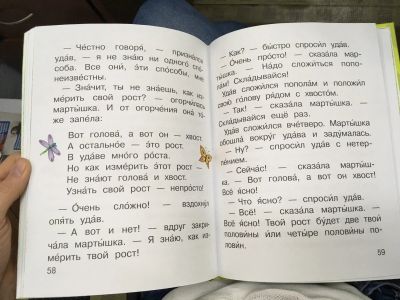 — Че́стно говоря́, — призна́лся
уда́в, — я не зна́ю ни одного́ спо́-
соба. Все они́, э́ти спо́собы, мне
неизве́стны.
— Зна́чит, ты не зна́ешь, как из-
ме́рить свой рост? — огорчи́лась
марты́шка. И от огорче́ния она́ то́-
же запе́ла:
Вот голова́, а вот он — хвост.
А остально́е — э́то рост.
В уда́ве мно́го ро́ста.
Но как изме́рить э́тот рост —
Не зна́ют голова́ и хвост.
Узна́ть свой рост — непро́сто!
— О́чень сло́жно! — вздохну́л
опя́ть уда́в.
— А вот и нет! — вдруг закри-
ча́ла марты́шка. — Я зна́ю, как из-
ме́рить твой рост!
58
— Как? — бы́стро спроси́л уда́в.
— О́чень про́сто! — сказа́ла мар-
ты́шка. — На́до сложи́ться попо-
ла́м! Скла́дывайся!
Уда́в сложи́лся попола́м и положи́л
свою́ го́лову ря́дом с хвосто́м.
— Так! — сказа́ла марты́шка. —
Скла́дывайся ещё раз.
Уда́в сложи́лся вче́тверо. Марты́шка
обошла́ вокру́г уда́ва и заду́малась.
— Ну? — спроси́л уда́в с нетер-
пе́нием.
— Сейча́с! — сказа́ла марты́шка.
— Вот голова́, а вот он хвост!
Всё я́сно!
— Что я́сно? — спроси́л уда́в.
— Всё! — сказа́ла марты́шка. —
Всё я́сно! Твой рост бу́дет две твои́
полови́ны и́ли четы́ре полови́ны по-
лови́н.
59